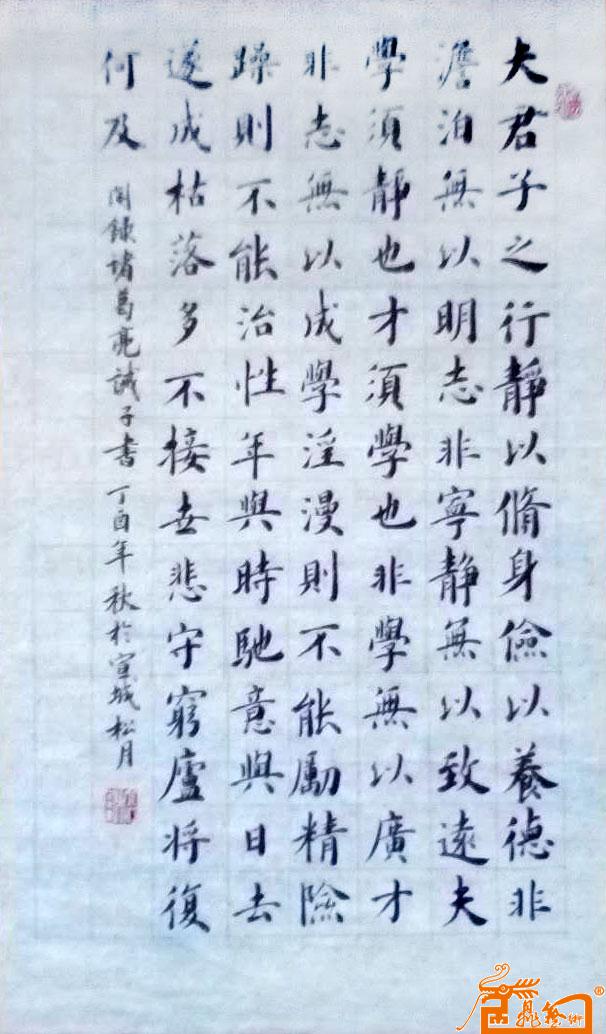 夫君子之行靜以脩身儉以養德非
澹泊無以明志非寧靜無以致遠夫
學須靜也才須學也非學無以廣才
非志無以成學淫漫則不能勵精險
躁則不能治性年與時馳意與日去
遂成枯落多不接世悲守窮廬將復
何及
閑錄諸葛亮誡子書丁酉年秋於宣城松月